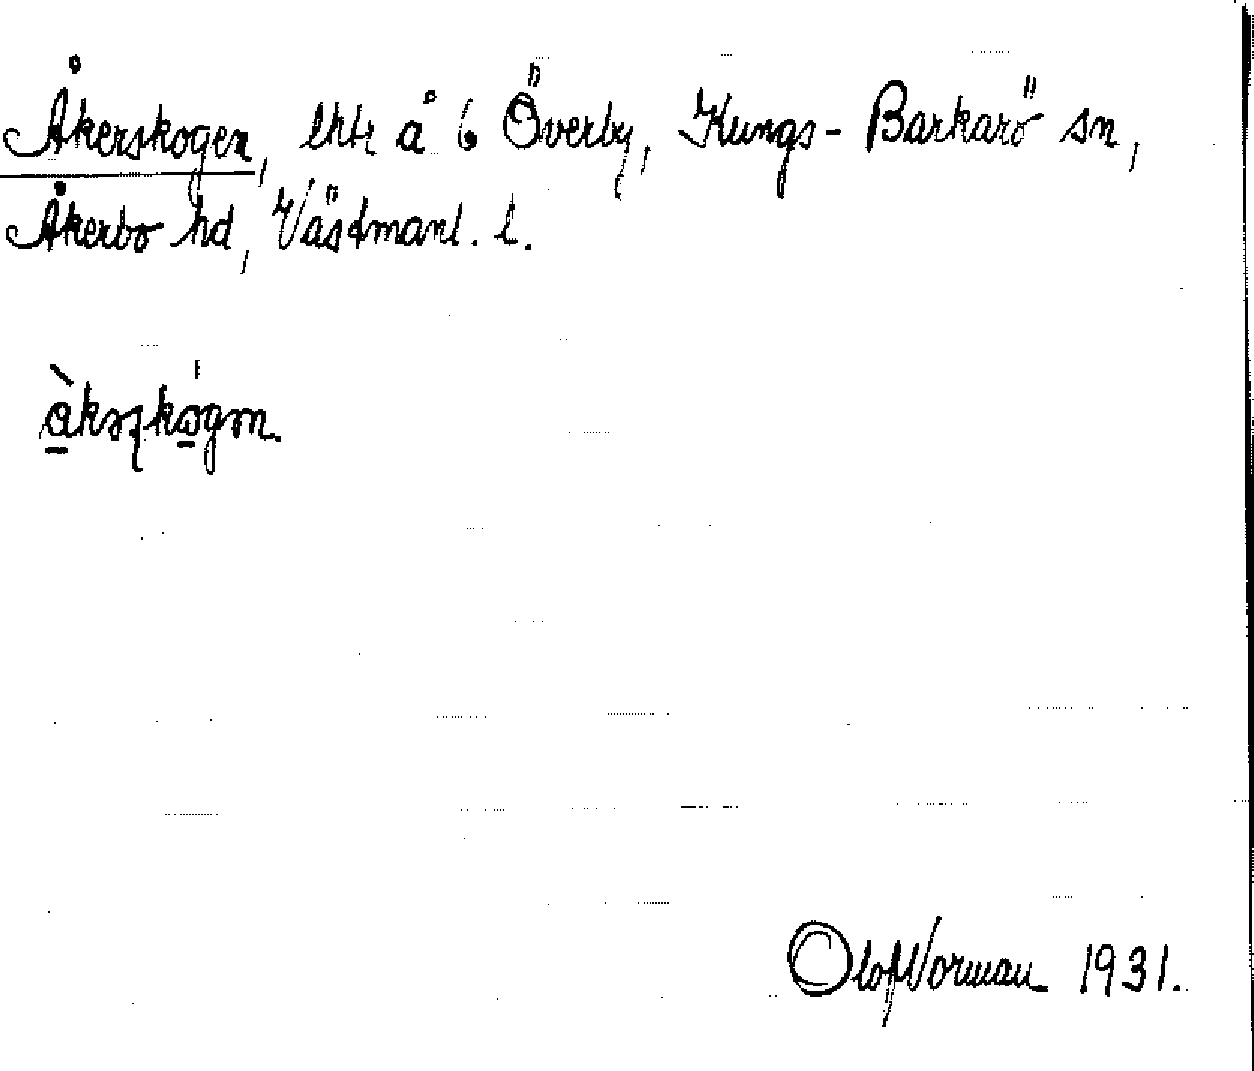 Åkerskogen, lhtr å 6 Överby, Kungs-Barkarö sn,
Åkerbo hd, Västmanl. l.
Olof Norman 1931.